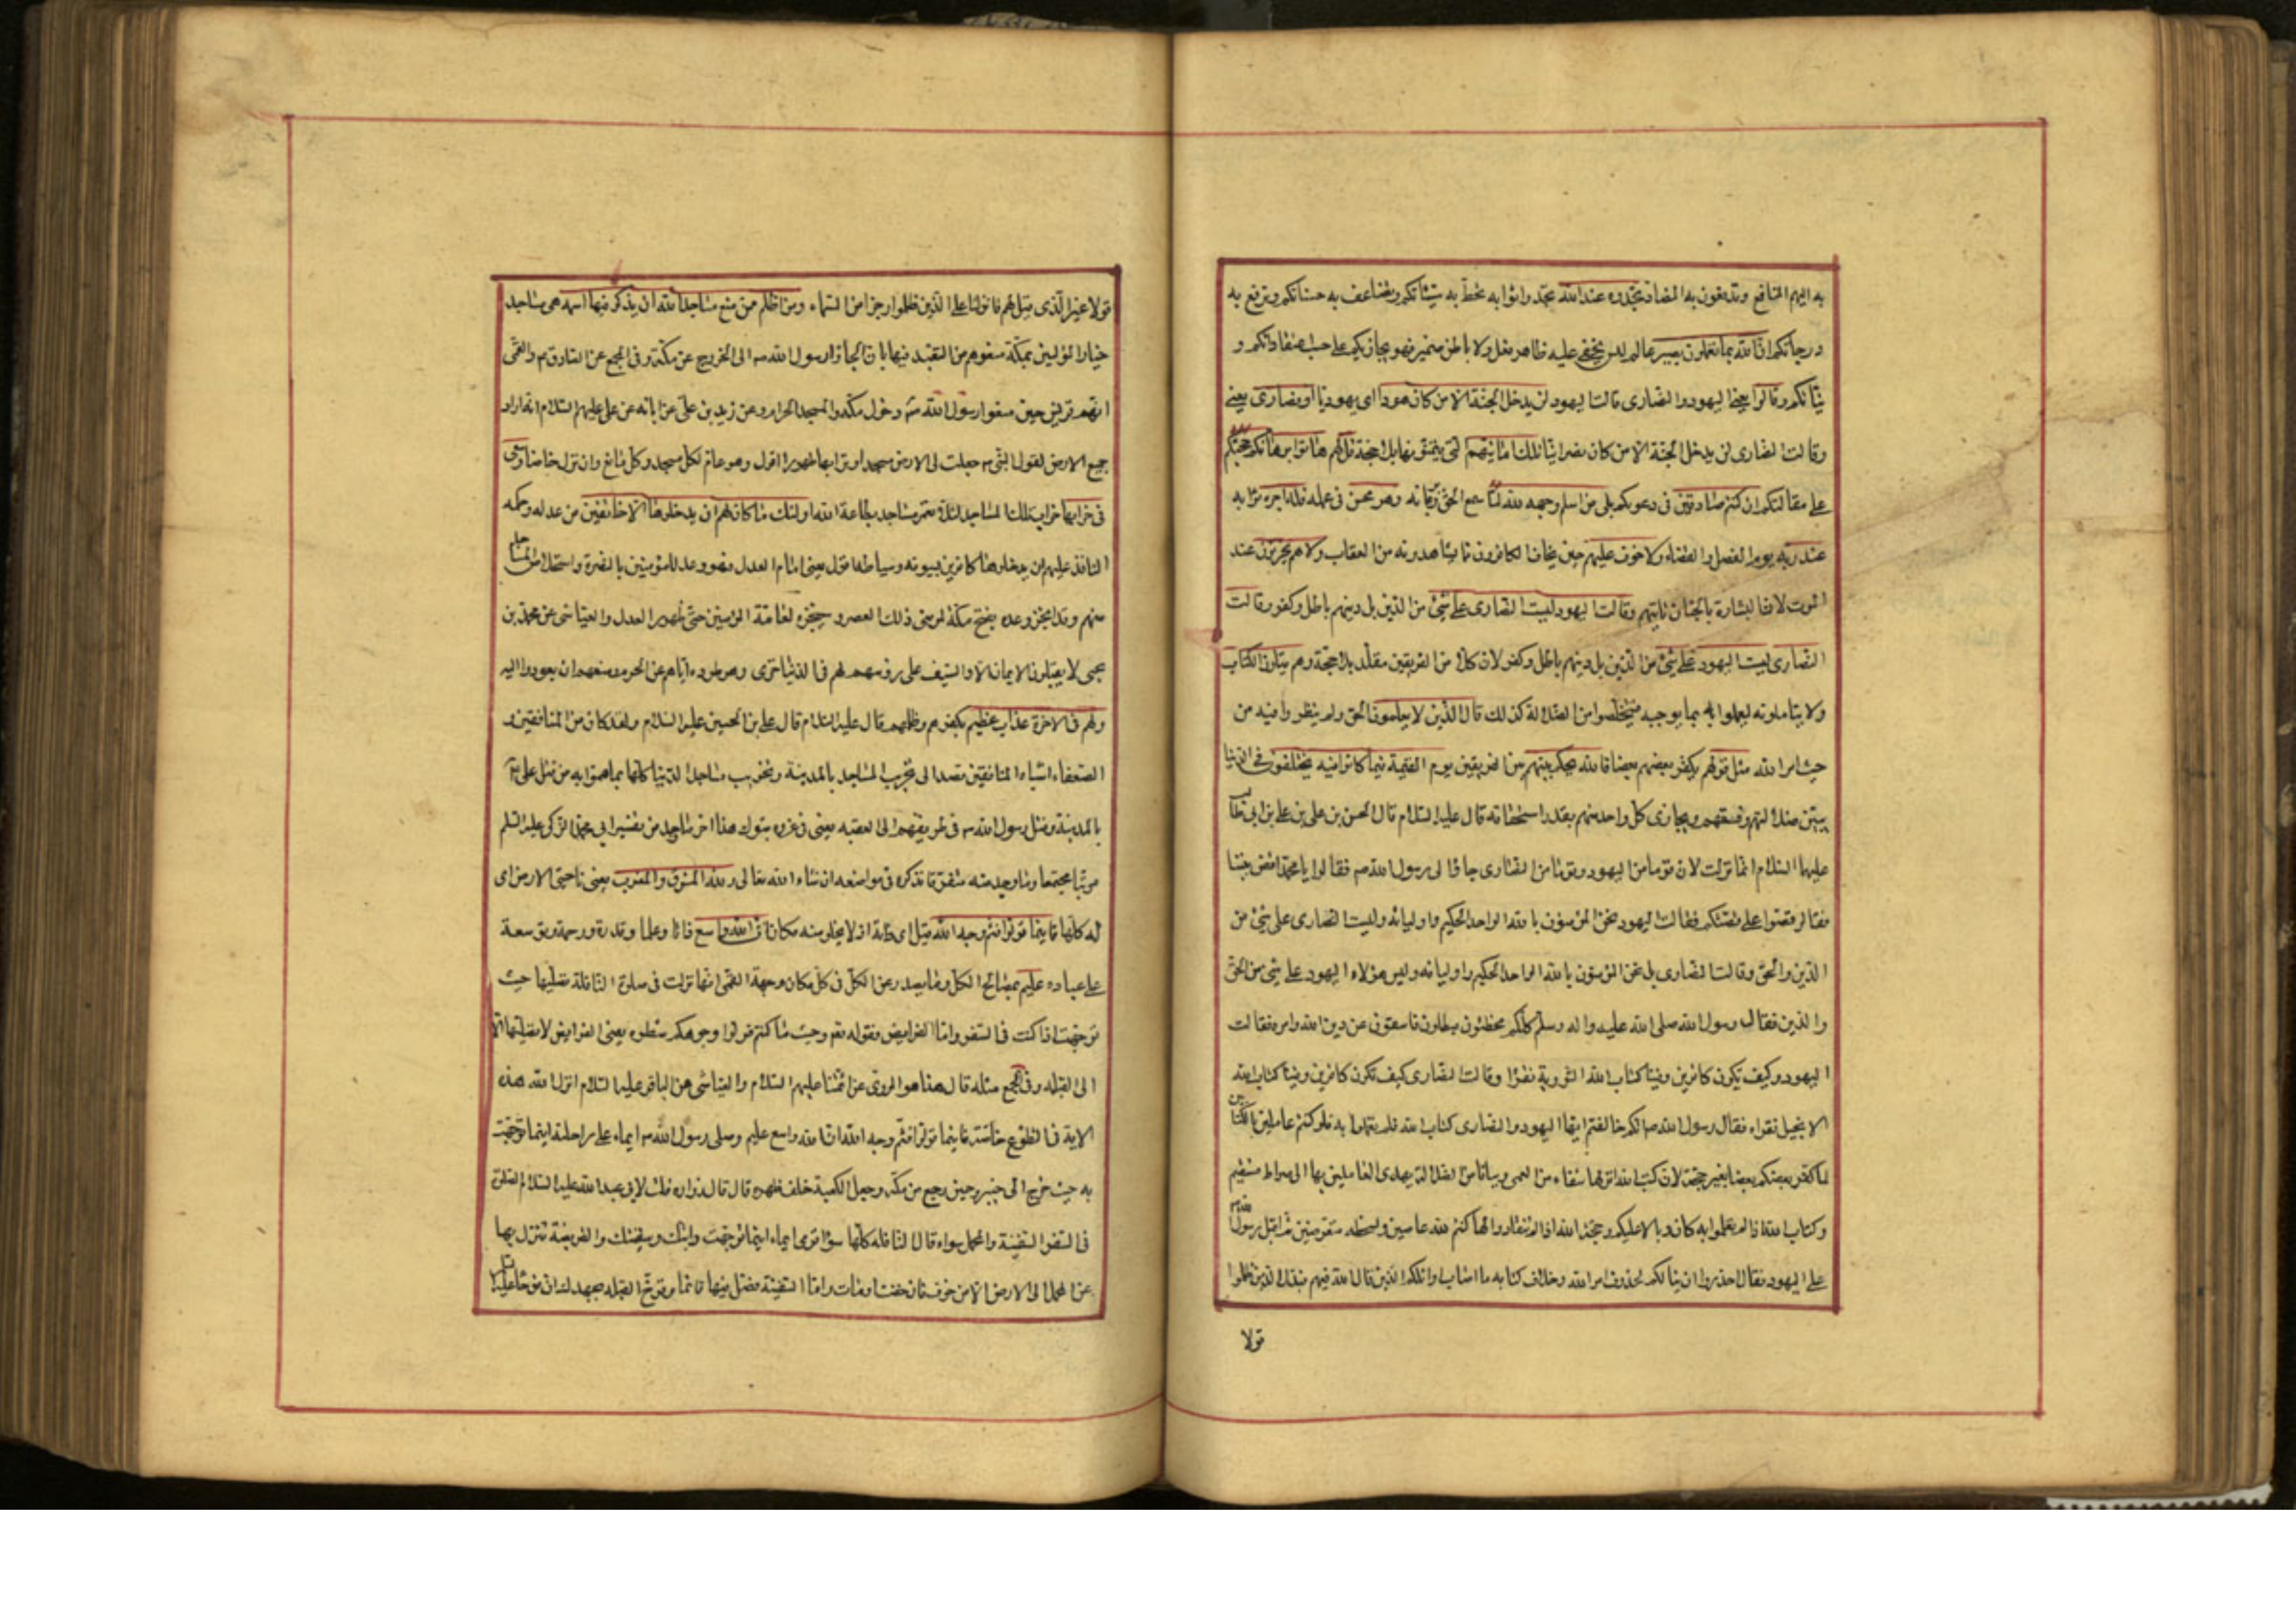 به اليهم المنافع وتدفعون به المضار تجدوه عند الله تجدوا ثوابه تحط به سيئاتكم وتضاعف به حسناتكم وترفع به
درجاتكم ان الله بما تعملون بصير عالم ليس يخفى عليه ظاهر فعل ولا باطن ضمير فهو يجازيكم على حسب اعتقاداتكم و
نياتكم وقالوا يعني اليهود والنصارى قالت اليهود لن يدخل الجنة الا من كان هودا اى يهوديا او نصارى يعني
وقالت النصارى لن يدخل الجنة الا من كان نصرانيا تلك امانيهم التي يتمنونها بلا حجة قل لهم هاتوا برهانكم حجتكم
على مقالتكم ان كنتم صادقين في دعوبكم بلى من اسلم وجهه لله لما سمع الحق وبرهانه وهو محسن في عمله لله فله اجره ثوابه
عند ربه يوم الفصل والقضاء ولا خوف عليهم حين يخاف الكافرون مما يشاهدونه من العقاب ولا هم يحزنون عند
الموت لان البشارة بالجنان تاتيهم وقالت اليهود ليست النصارى على شئ من الدين بل دينهم باطل وكفر وقالت
النصارى ليست اليهود على شئ من الدين بل دينهم باطل وكفر لان كلا من الفريقين مقلد بلا حجة وهم يتلون الكتاب
ولا يتاملونه ليعملوا به بما يوجبه فيتخلصوا من الضلالة كذلك قال الذين لا يعلمون الحق ولم ينظروا فيه من
حيث امر الله مثل قولهم يكفر بعضهم بعضا فالله يحكم بينهم بين الفريقين يوم القيمة فيما كانوا فيه يختلفون في الدنيا
يبين ضلالتهم وفسقهم ويجازى كل واحد منهم بقدر استحقاقه قال عليه السلام قال الحسن بن على بن على بن ابى طالب
عليهما السلام انما نزلت لان قوما من اليهود وقوما من النصارى جاؤا الى رسول الله ص فقالوا يا محمد اقض بيننا
فقال قصوا على قصتكم فقالت اليهود نحن المؤمنون بالله الواحد الحكيم واوليائه وليست النصارى على شئ من
الدين والحق وقالت النصارى بل نحن المؤمنون بالله الواحد الحكيم واوليائه وليس هؤلاء اليهود على شئ من الحق
والدين فقال رسول الله صلى الله عليه واله وسلم كلكم مخطئون مبطلون فاسقون عن دين الله وامره فقالت
اليهود وكيف نكون كافرين وفينا كتاب الله التورية نقرا وقالت النصارى كيف نكون كافرين وفينا كتاب الله
الانجيل نقراه فقال رسول الله ص انكم خالفتم ايها اليهود والنصارى كتاب الله فلم تعملوا به فلو كنتم عاملين بالكتابين
لما كفر بعضكم بعضا بغير حجة لان كتب الله انزلها شفاء من العمى وبيانا من الضلالة يهدى العاملين بها الى صراط مستقيم
وكتاب الله اذا لم تعملوا به كان وبالا عليكم وحجة الله اذا لم تنقادوا لها كنتم لله عاصين ولسخطه متعرضين ثم اقبل رسول الله ص
على اليهود فقال احذروا ان ينالكم لخلاف امر الله وخلاف كتابه ما اصاب اوائلكم الذين قال الله فيهم فبدل الذين ظلموا
قولا
قولا غير الذى قيل لهم فانزلنا على الذين ظلموا رجزا من السماء ومن اظلم ممن منع مساجد الله ان يذكر فيها اسمه هى مساجد
خيار المؤمنين بمكة منعوهم من التعبد فيها بان الجاؤا رسول الله ص الى الخروج عن مكة وفى المجمع عن الصادق ع والقمى
انهم قريش حين منعوا رسول الله ص دخول مكة والمسجد الحرام وعن زيد بن على عن ابائه عن على عليهم السلام انه اراد
جميع الارض لقول النبى ص جعلت لى الارض مسجدا وترابها طهورا اقول وهو عام لكل مسجد وكل مانع وان نزل خاصا وسعى
فى خرابها خراب تلك المساجد لئلا تعمر مساجد بطاعة الله اولئك ما كان لهم ان يدخلوها الا خائفين من عدله وحكمه
النافذ عليهم ان يدخلوها كافرين بسيوفه وسياطه اقول يعنى امام العدل فهو وعد للمؤمنين بالنصرة واستخلاص المساجد
منهم وقد انجز وعده بفتح مكة لمؤمنى ذلك العصر وسينجزه لعامة المؤمنين حتى ظهور العدل والعياشى عن محمد بن
يحيى لا يقبلون الايمان الا والسيف على رؤسهم لهم فى الدنيا خزى وهو طرده اياهم عن الحرم ومنعهم ان يعودوا اليه
ولهم فى الاخرة عذاب عظيم بكفرهم وظلمهم قال عليه السلام قال على بن الحسين عليه السلام ولقد كان من المنافقين و
الضعفاء اشباه المنافقين قصد الى تخريب المساجد بالمدينة وتخريب مساجد الدنيا كلها بما هموا به من قتل على ع
بالمدينة وقتل رسول الله ص فى طريقهم الى العقبه يعنى فى غزوه تبوك هذا اخر ما وجد من تفسير ابى محمد الزكى عليه السلم
مرتبا مجتمعا وما وجد منه متفرقا نذكره فى مواضعه ان شاء الله تعالى ولله المشرق والمغرب يعنى ناحيتى الارض اى
له كلها فاينما تولوا فثم وجه الله قيل اى ذاته اذ لا يخلو منه مكان ان الله واسع ذاتا وعلما وقدرة ورحمة وتوسعة
على عباده عليم بمصالح الكل وما يصدر عن الكل فى كل مكان وجهة القمى انها نزلت فى صلوة النافلة تصليها حيث
توجهت اذا كنت فى السفر واما الفرايض فقوله تعم وحيث ما كنتم فولوا وجوهكم شطره يعنى الفرايض لا تصليها الا
الى القبله وفى المجمع مثله قال هذا هو المروى عن ائمتنا عليهم السلام والعياشى عن الباقر عليه السلام انزل الله هذه
الاية فى التطوع خاصة فاينما تولوا فثم وجه الله ان الله واسع عليم وصلى رسول الله ص ايماء على راحلته اينما توجهت
به حيث خرج الى خيبر وحين رجع من مكة وجعل الكعبة خلف ظهره قال قال زراره قلت لابى عبد الله عليه السلام الصلوة
فى السفر السفينة والمحمل سواء قال النافله كلها سواء تومى ايماء اينما توجهت دابتك وسفينتك والفريضة تنزل بها
عن المحمل الى الارض الا من خوف فان خفت اومات واما السفينة فصل فيها قائما وتوخ القبله بجهدك ان نوحا عليه السلام